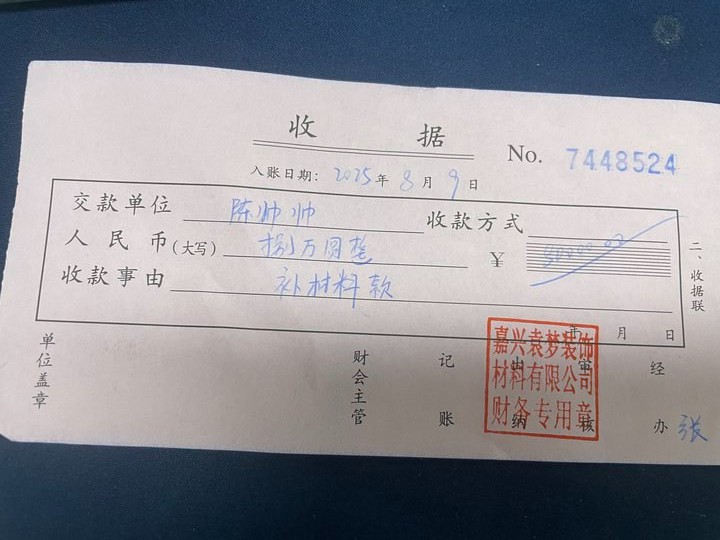 收 据
No. 7448524
入账日期: 2025年 8月 9日
交款单位 陈帅帅 收款方式
人民币(大写) 捌万圆整 ¥
收款事由 补材料款
年 月 日
二、收据联
单位盖章 财会主管 记账 出纳 审核 经办 张
嘉兴袁梦装饰
材料有限公司
财务专用章